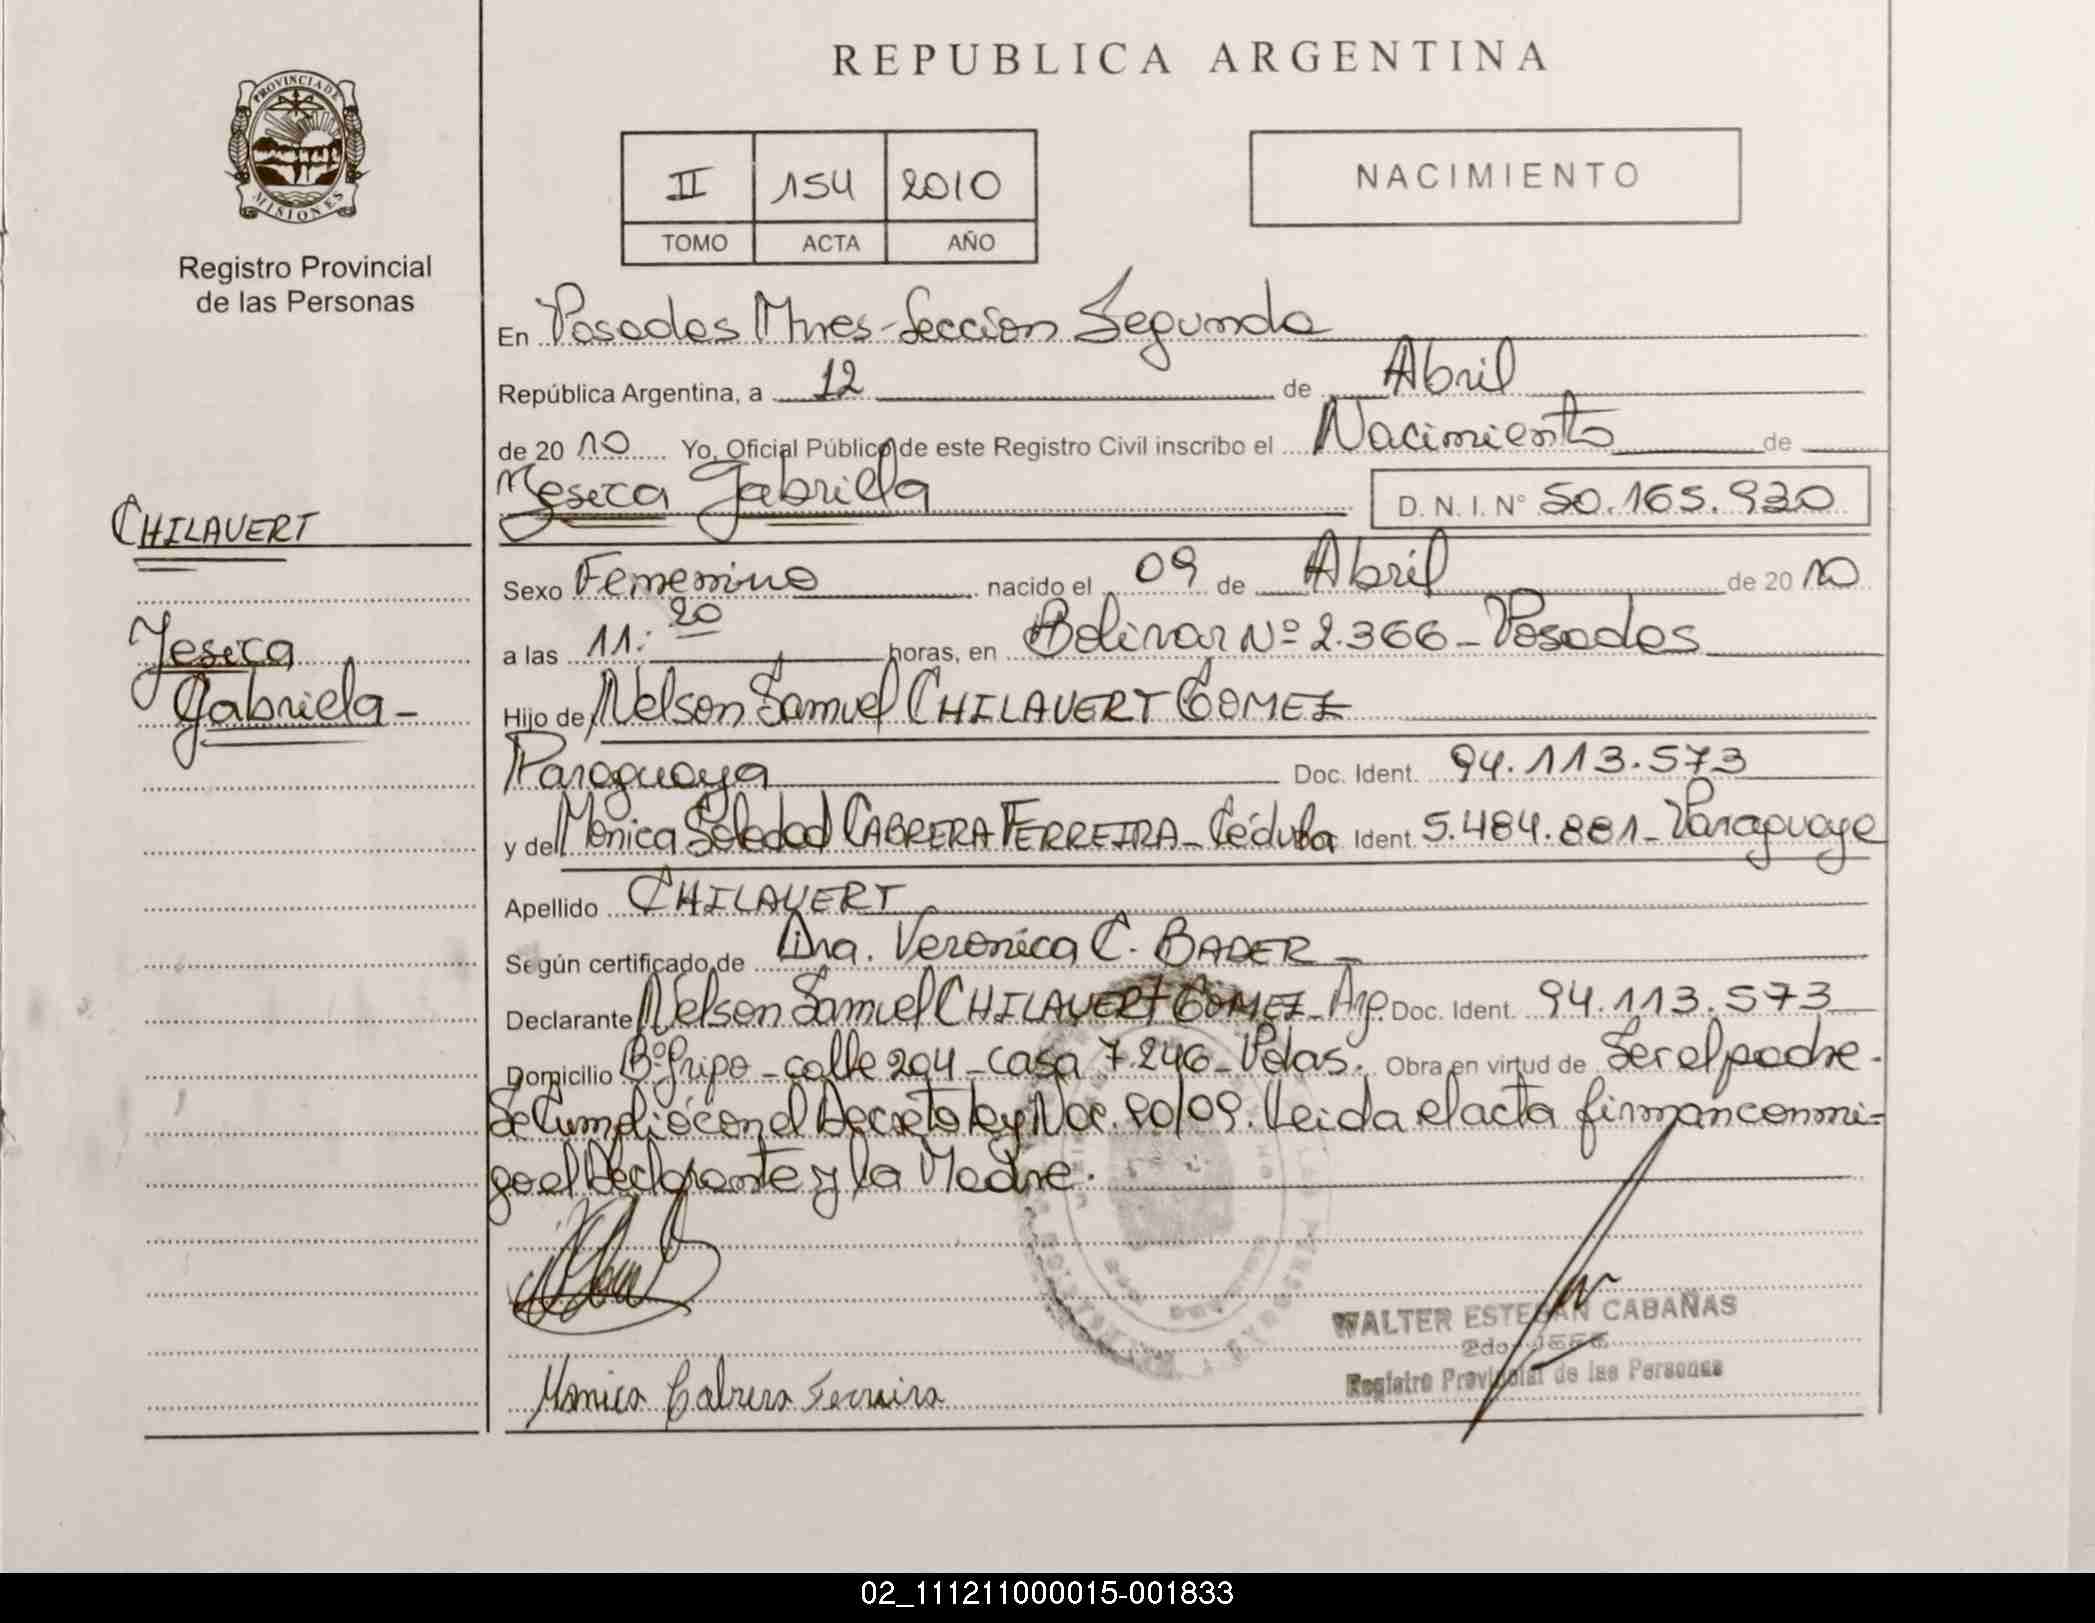 REPUBLICA ARGENTINA
PROVINCIA DE
MISIONES
Registro Provincial
de las Personas
II 154 2010
TOMO ACTA AÑO
NACIMIENTO
En Posadas Mnes - Seccion Segunda
República Argentina, a 12 de Abril
de 2010 Yo, Oficial Público de este Registro Civil inscribo el Nacimiento de
Yesica Gabriela D. N. I. N° 50.165.930
CHILAVERT
Sexo Femenino nacido el 09 de Abril de 2010
Yesica
a las 11:20 horas, en Bolivar Nº 2.366 - Posadas
Gabriela -
Hijo de Nelson Samuel CHILAVERT GOMEZ
Paraguaya Doc. Ident. 94.113.573
y de Monica Soledad CABRERA FERREIRA - Cédula Ident. 5.484.881 - Paraguaya
Apellido CHILAVERT
Según certificado de Dra. Veronica C. BADER -
Declarante Nelson Samuel CHILAVERT GOMEZ - Arg. Doc. Ident. 94.113.573
Domicilio Bº - calle 204 - casa 7.246 - Pdas. Obra en virtud de Ser el padre -
Se Cumplió con el Decreto ley Nac. 90/09. Leida el acta firman conmi=
go el Declarante y la Madre.
WALTER ESTEBAN CABAÑAS
2do. Jefe
Registro Provincial de las Personas
Monica Cabrera Ferreira
02_111211000015-001833